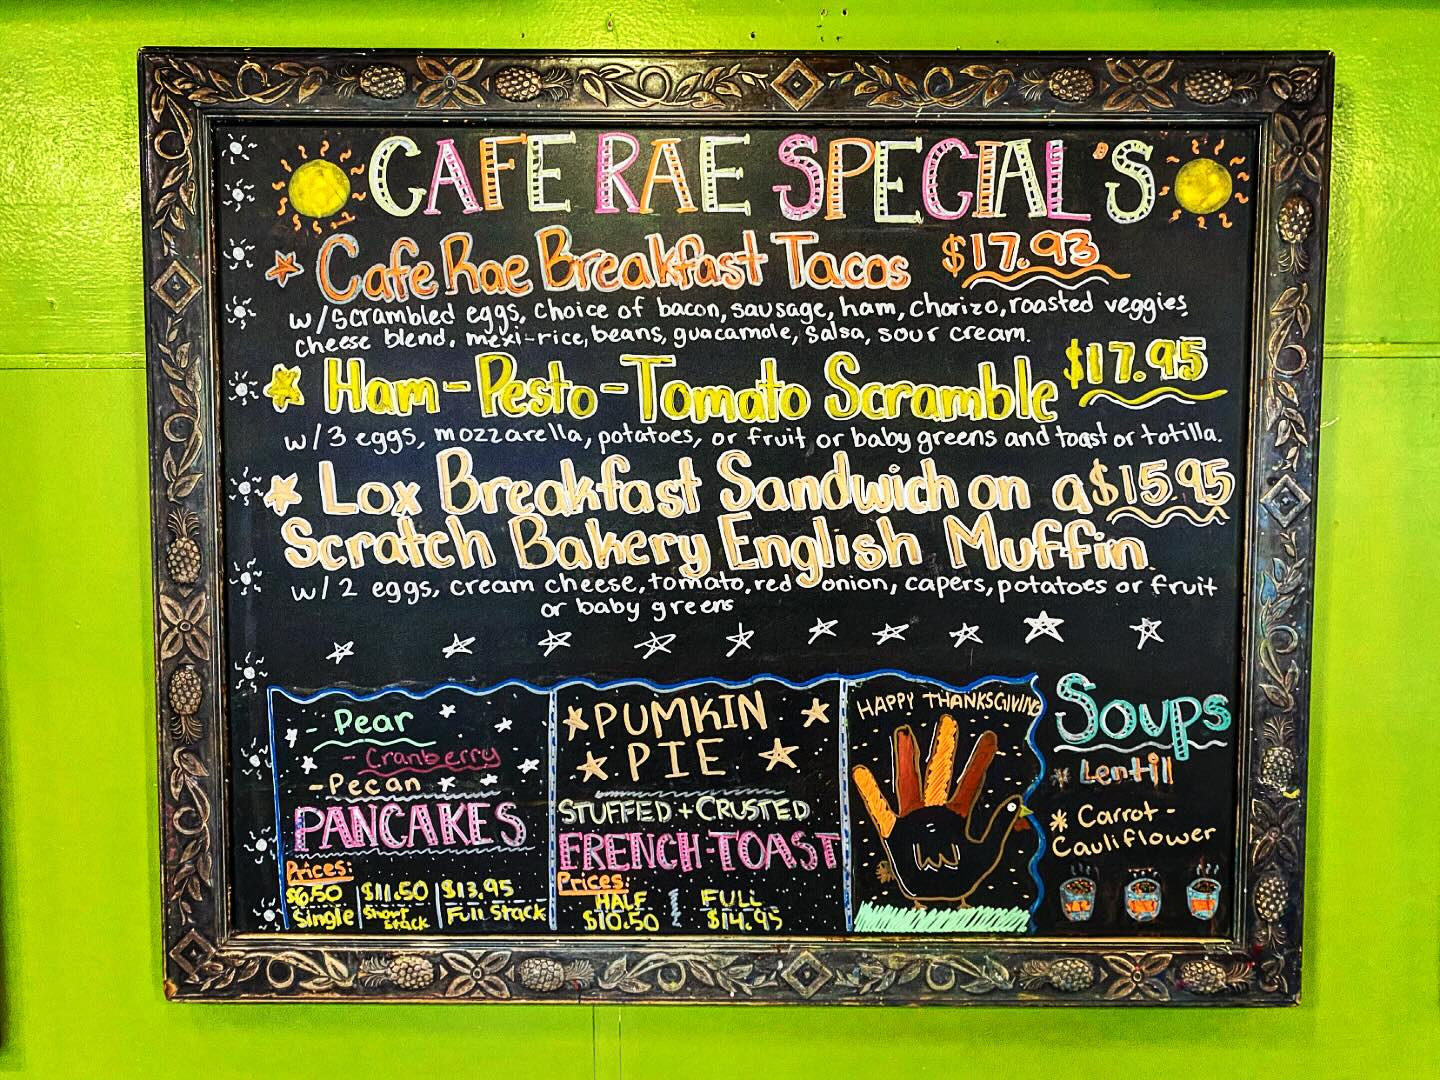 CAFE RAE SPECIAL'S
Cafe Rae Breakfast Tacos $17.93
w/scrambled eggs, choice of bacon, sausage, ham, chorizo, roasted veggies
cheese blend, mexi-rice, beans, guacamole, salsa, sour cream.
Ham-Pesto-Tomato Scramble $17.95
w/3 eggs, mozzarella, potatoes, or fruit or baby greens and toast or totilla.
Lox Breakfast Sandwich on a $15.95
Scratch Bakery English Muffin
w/2 eggs, cream cheese, tomato, red onion, capers, potatoes or fruit
or baby greens
- Pear
- Cranberry
- Pecan
PANCAKES
Prices:
$6.50 $11.50 $13.95
Single Short stack Full Stack
PUMKIN
PIE
STUFFED + CRUSTED
FRENCH-TOAST
Prices:
HALF FULL
$10.50 $14.95
HAPPY THANKSGIVING
Soups
Lentil
Carrot-
Cauliflower